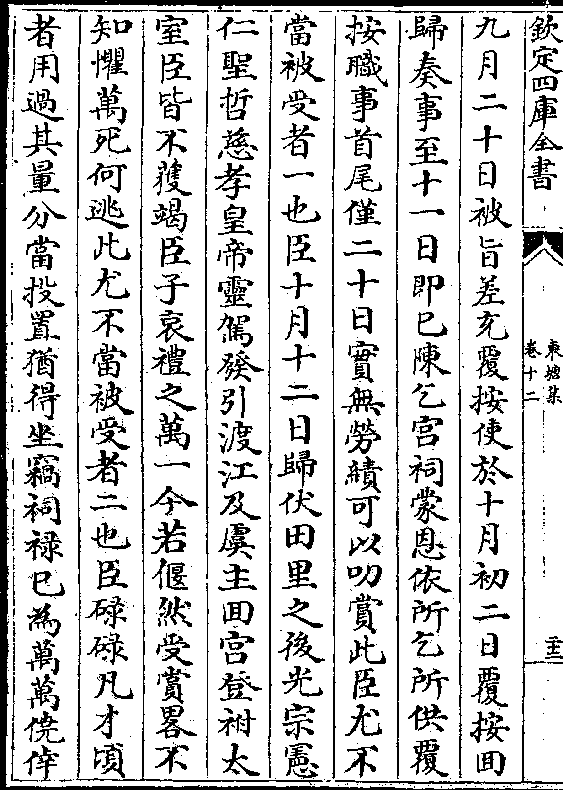 欽定四庫全書
東塘集
卷十二
二十二
九月二十日被旨差充覆按使於十月初二日覆按回
歸奏事至十一日即已陳乞宫祠蒙恩依所乞所供覆
按職事首尾僅二十日實無勞績可以叨賞此臣尤不
當被受者一也臣十月十二日歸伏田里之後光宗憲
仁聖哲慈孝皇帝靈駕發引渡江及虞主回宫登祔太
室臣皆不獲竭臣子哀禮之萬一今若偃然受賞畧不
知懼萬死何逃此尤不當被受者二也臣碌碌凡才頃
者用過其量分當投置猶得坐竊祠禄已為萬萬僥倖